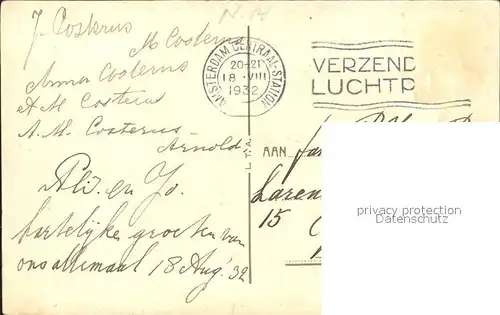 N.H
J. Costerus
M Costerus
Anna Costerus
A M Costerus
A. M. Costerus
Arnold
Ali en Jo.
hartelijke groeten van
ons allemaal 18 Aug. '32
AMSTERDAM CENTRAAL-STATION
20-21
18 · VIII
1932
VERZEND
LUCHTP
AAN
Laren
15
privacy protection
Datenschutz